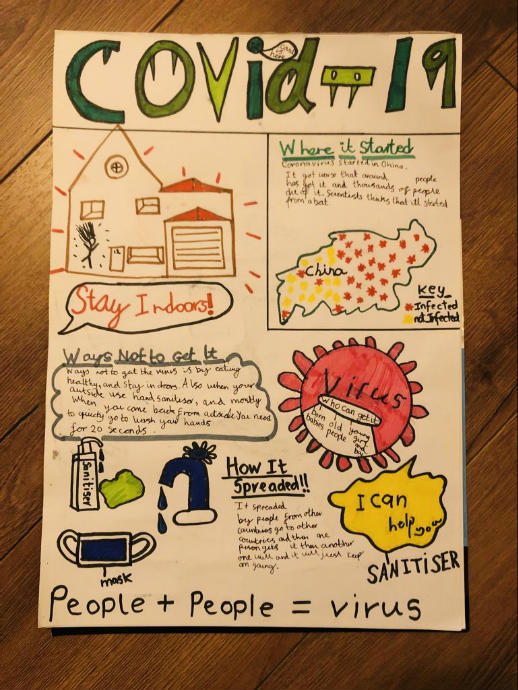 COVid-19
Where it Started
Coronavirus started in China.
It got worse that around people
has got it and thousands of people
die of it. Scientists thinks that it started
from a bat.
China
Key
Infected
not Infected
Stay Indoors!
Ways Not to Get It
Ways not to get the virus is by eating
healthy, and stay indoors. Also when your
outside use hand sanitiser, and mostly
when you come back from outside you need
to quickly go to wash your hands
for 20 seconds.
Virus
Who can get it
born old young
babies people girl
and
boy
Sanitiser
How It
Spreaded!!
It spreaded
by people from other
countries go to other
countries and then one
person gets it then another
one will and it will just keep
on going.
I can
help you
SANiTiSER
mask
People + People = virus